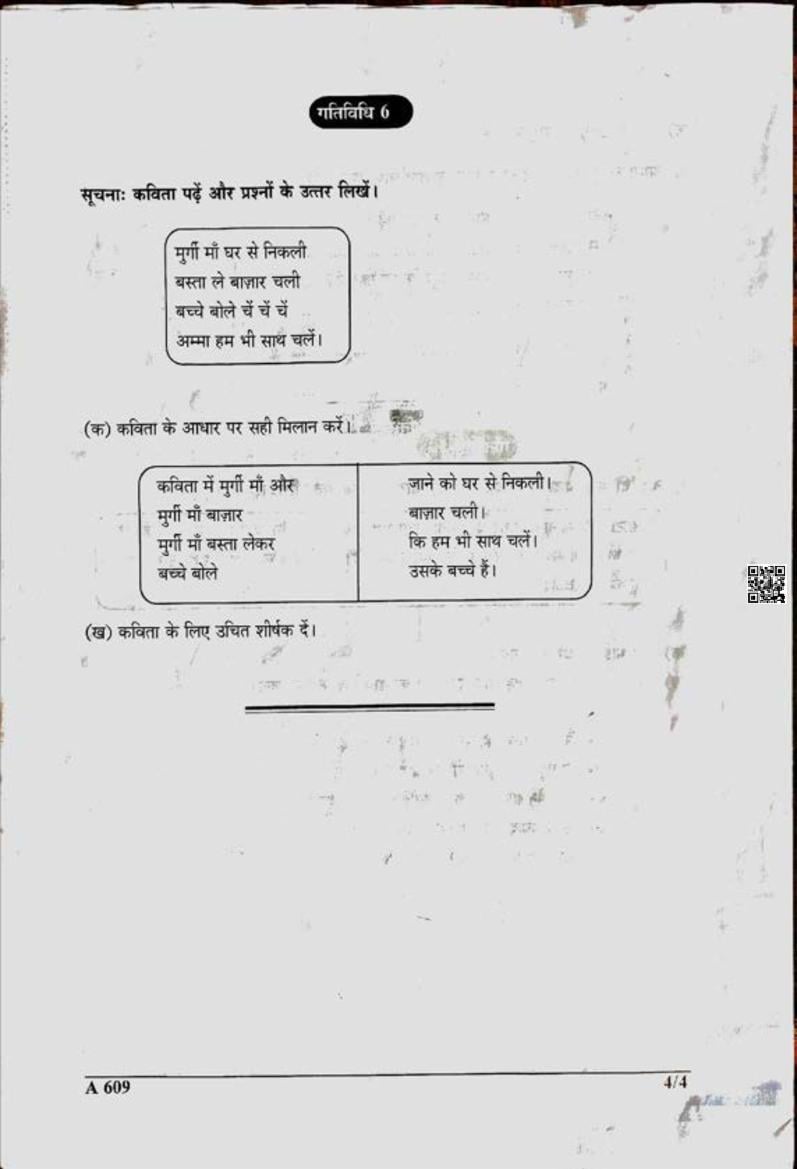 गतिविधि 6
सूचनाः कविता पढ़ें और प्रश्नों के उत्तर लिखें।
मुर्गी माँ घर से निकली
बस्ता ले बाज़ार चली
बच्चे बोले चें चें चें
अम्मा हम भी साथ चलें।
(क) कविता के आधार पर सही मिलान करें।
कविता में मुर्गी माँ और जाने को घर से निकली।
मुर्गी माँ बाज़ार बाज़ार चली।
मुर्गी माँ बस्ता लेकर कि हम भी साथ चलें।
बच्चे बोले उसके बच्चे हैं।
(ख) कविता के लिए उचित शीर्षक दें।
A 609 4/4